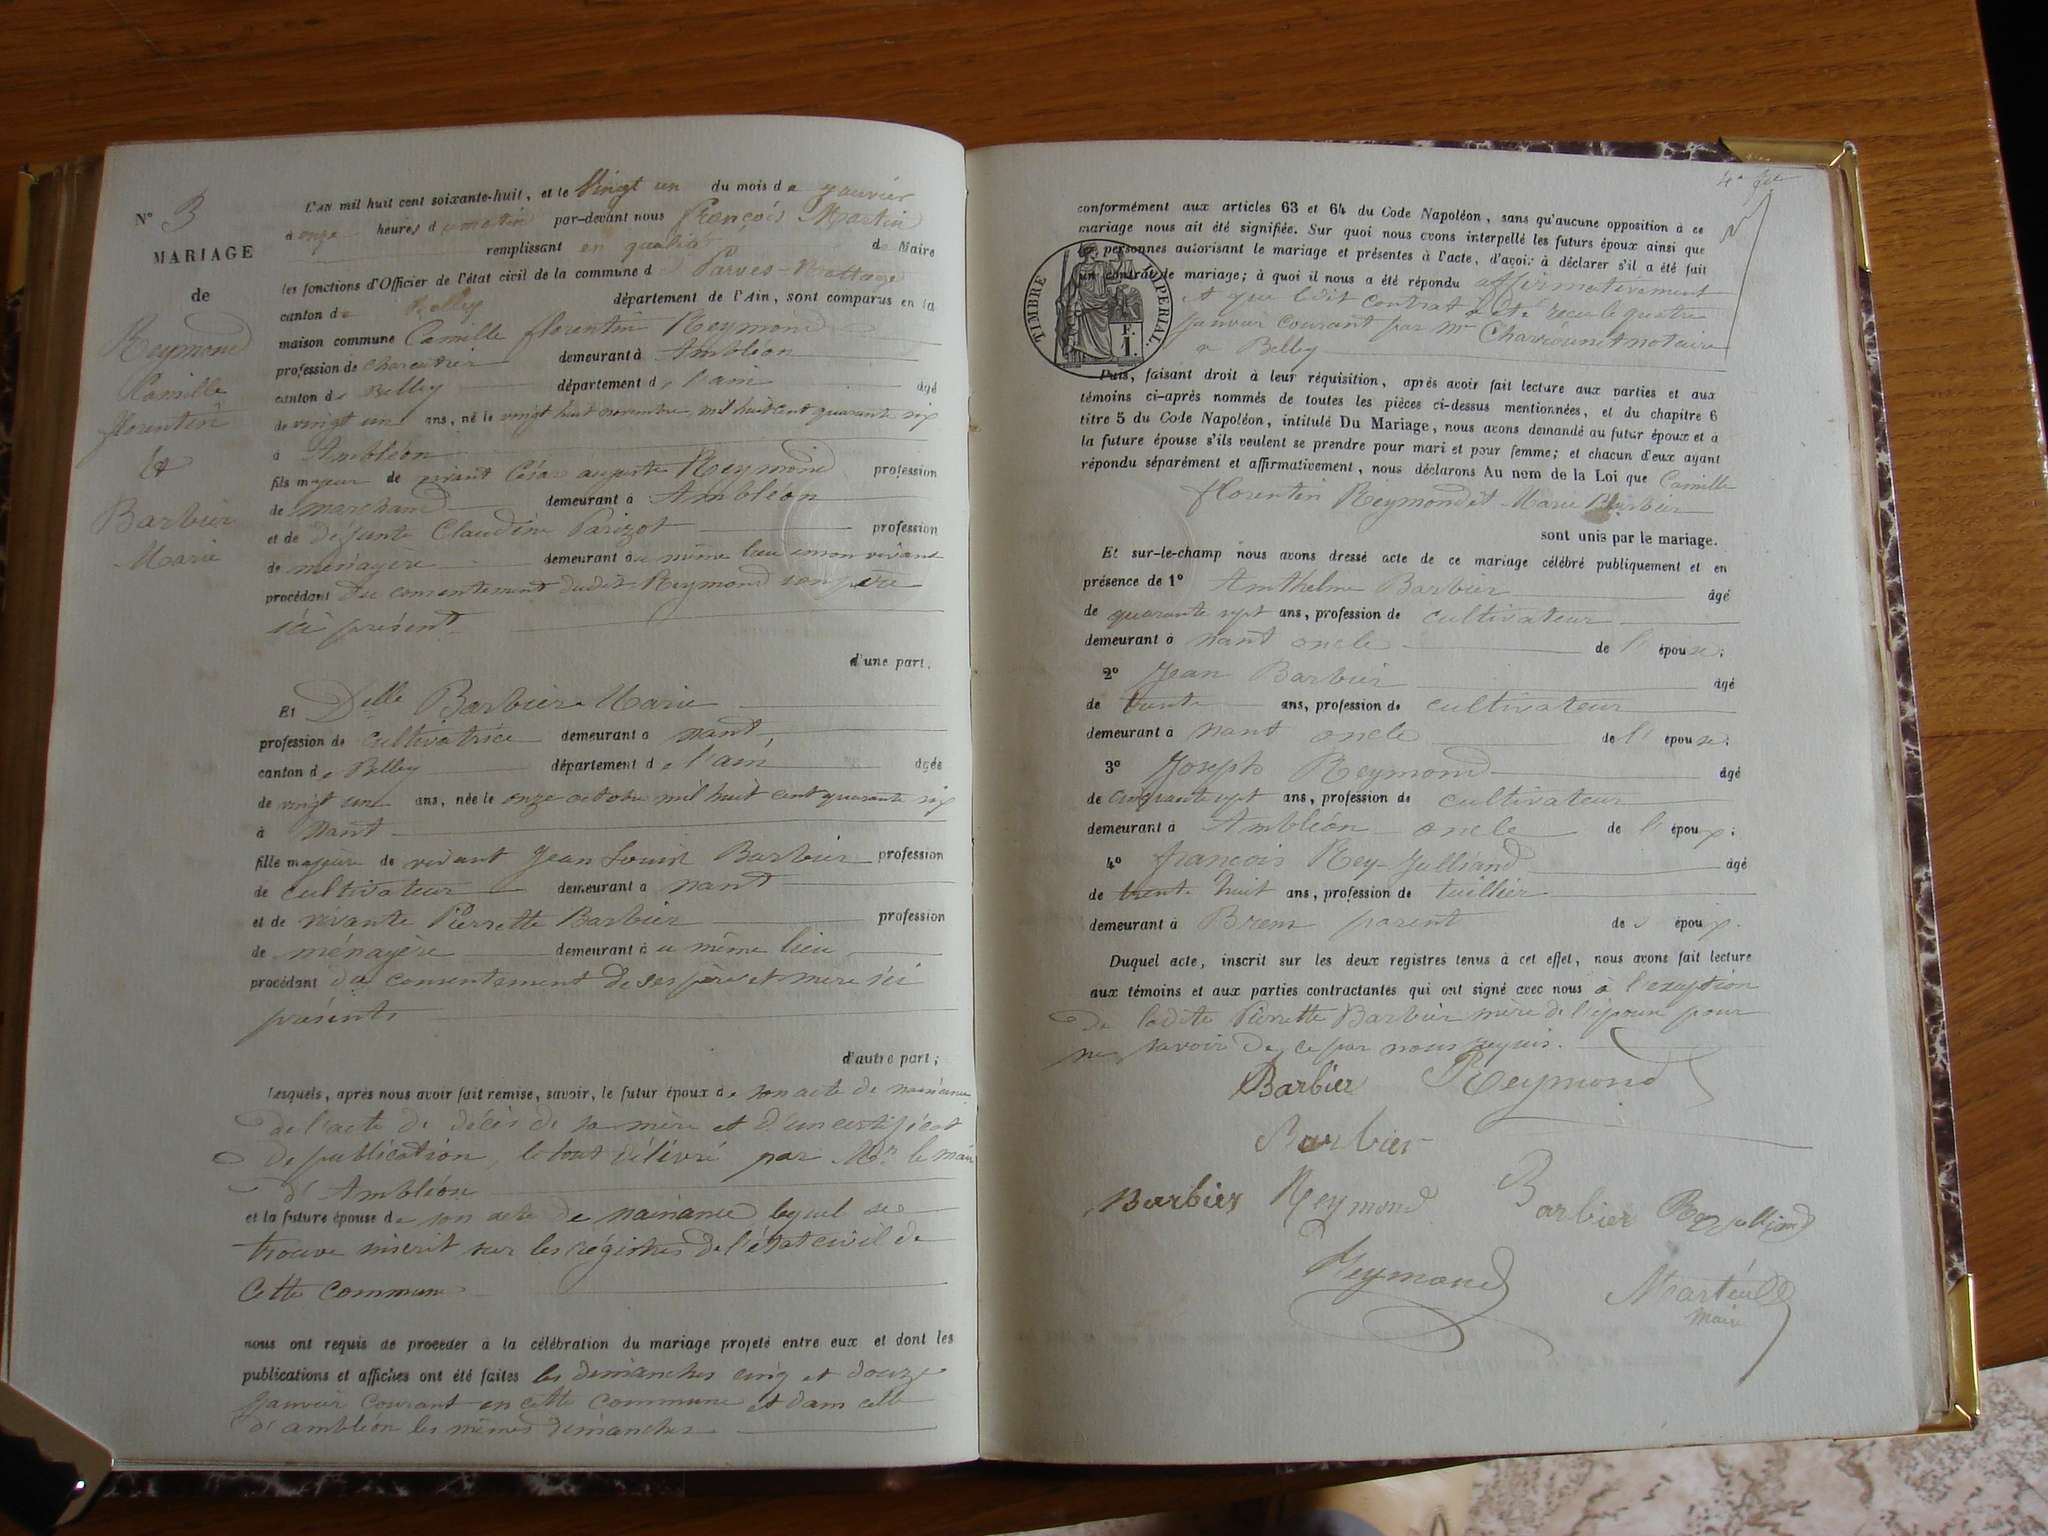 N° 3
MARIAGE
de
Reymond
Camille
florentin
et
Barbier
Marie
L'AN mil huit cent soixante-huit, et le Vingt un du mois de janvier
à onze heures du matin par-devant nous François Martin
remplissant en qualité de Maire
les fonctions d'Officier de l'état civil de la commune de Parves-Nattages
canton de Belley département de l'Ain, sont comparus en la
maison commune Camille florentin Reymond
profession de Charcutier demeurant à Ambléon
canton de Belley département de l'ain âgé
de vingt un ans, né le vingt huit novembre mil huit cent quarante six
à Ambléon
fils majeur de vivant César auguste Reymond profession
de marchand demeurant à Ambléon
et de défunte Claudine Parizot profession
de ménagère demeurant au même lieu en son vivant
procédant du consentement dudit Reymond son père
ici présent
d'une part.
Et Delle Barbier Marie
profession de cultivatrice demeurant à nant
canton de Belley département de l'ain âgée
de vingt un ans, née le onze octobre mil huit cent quarante six
à nant
fille majeure de vivant Jean Louis Barbier profession
de cultivateur demeurant à nant
et de vivante Pierrette Barbier profession
de ménagère demeurant au même lieu
procédant du consentement de ses père et mère ici
présents
d'autre part;
Lesquels, après nous avoir fait remise, savoir, le futur époux de son acte de naissance
de l'acte de décès de sa mère et d'un certificat
de publication, le tout délivré par Mr le maire
d'Ambléon
et la future épouse de son acte de naissance lequel se
trouve inscrit sur les régistres de l'état civil de
cette commune
nous ont requis de procéder à la célébration du mariage projeté entre eux et dont les
publications et affiches ont été faites les dimanches cinq et douze
Janvier courant en cette commune et dans celle
d'ambléon les mêmes dimanches
conformément aux articles 63 et 64 du Code Napoléon, sans qu'aucune opposition à ce
mariage nous ait été signifiée. Sur quoi nous avons interpellé les futurs époux ainsi que
les personnes autorisant le mariage et présentes à l'acte, d'avoir à déclarer s'il a été fait
un contrat de mariage; à quoi il nous a été répondu affirmativement
et que ledit contrat a été reçu le quatre
janvier courant par Mr notaire
à Belley
TIMBRE IMPERIAL
F.
1.
Puis, faisant droit à leur réquisition, après avoir fait lecture aux parties et aux
témoins ci-après nommés de toutes les pièces ci-dessus mentionnées, et du chapitre 6
titre 5 du Code Napoléon, intitulé Du Mariage, nous avons demandé au futur époux et à
la future épouse s'ils veulent se prendre pour mari et pour femme; et chacun d'eux ayant
répondu séparément et affirmativement, nous déclarons Au nom de la Loi que Camille
florentin Reymond et Marie Barbier
sont unis par le mariage.
Et sur-le-champ nous avons dressé acte de ce mariage célébré publiquement et en
présence de 1° Anthelme Barbier âgé
de quarante sept ans, profession de cultivateur
demeurant à nant oncle de l'épouse;
2° Jean Barbier âgé
de trente ans, profession de cultivateur
demeurant à nant oncle de l'épouse;
3° Joseph Reymond âgé
de cinquante sept ans, profession de cultivateur
demeurant à Ambléon oncle de l'époux;
4° françois Rey-Julliand âgé
de trente huit ans, profession de tuillier
demeurant à Brens parent de l'époux.
Duquel acte, inscrit sur les deux registres tenus à cet effet, nous avons fait lecture
aux témoins et aux parties contractantes qui ont signé avec nous à l'exception
de ladite Pierrette Barbier mère de l'épouse pour
ne savoir de ce par nous requis.
Barbier Reymond
Barbier
Barbier Reymond Barbier Reyjulliand
Reymond
Martin
Maire